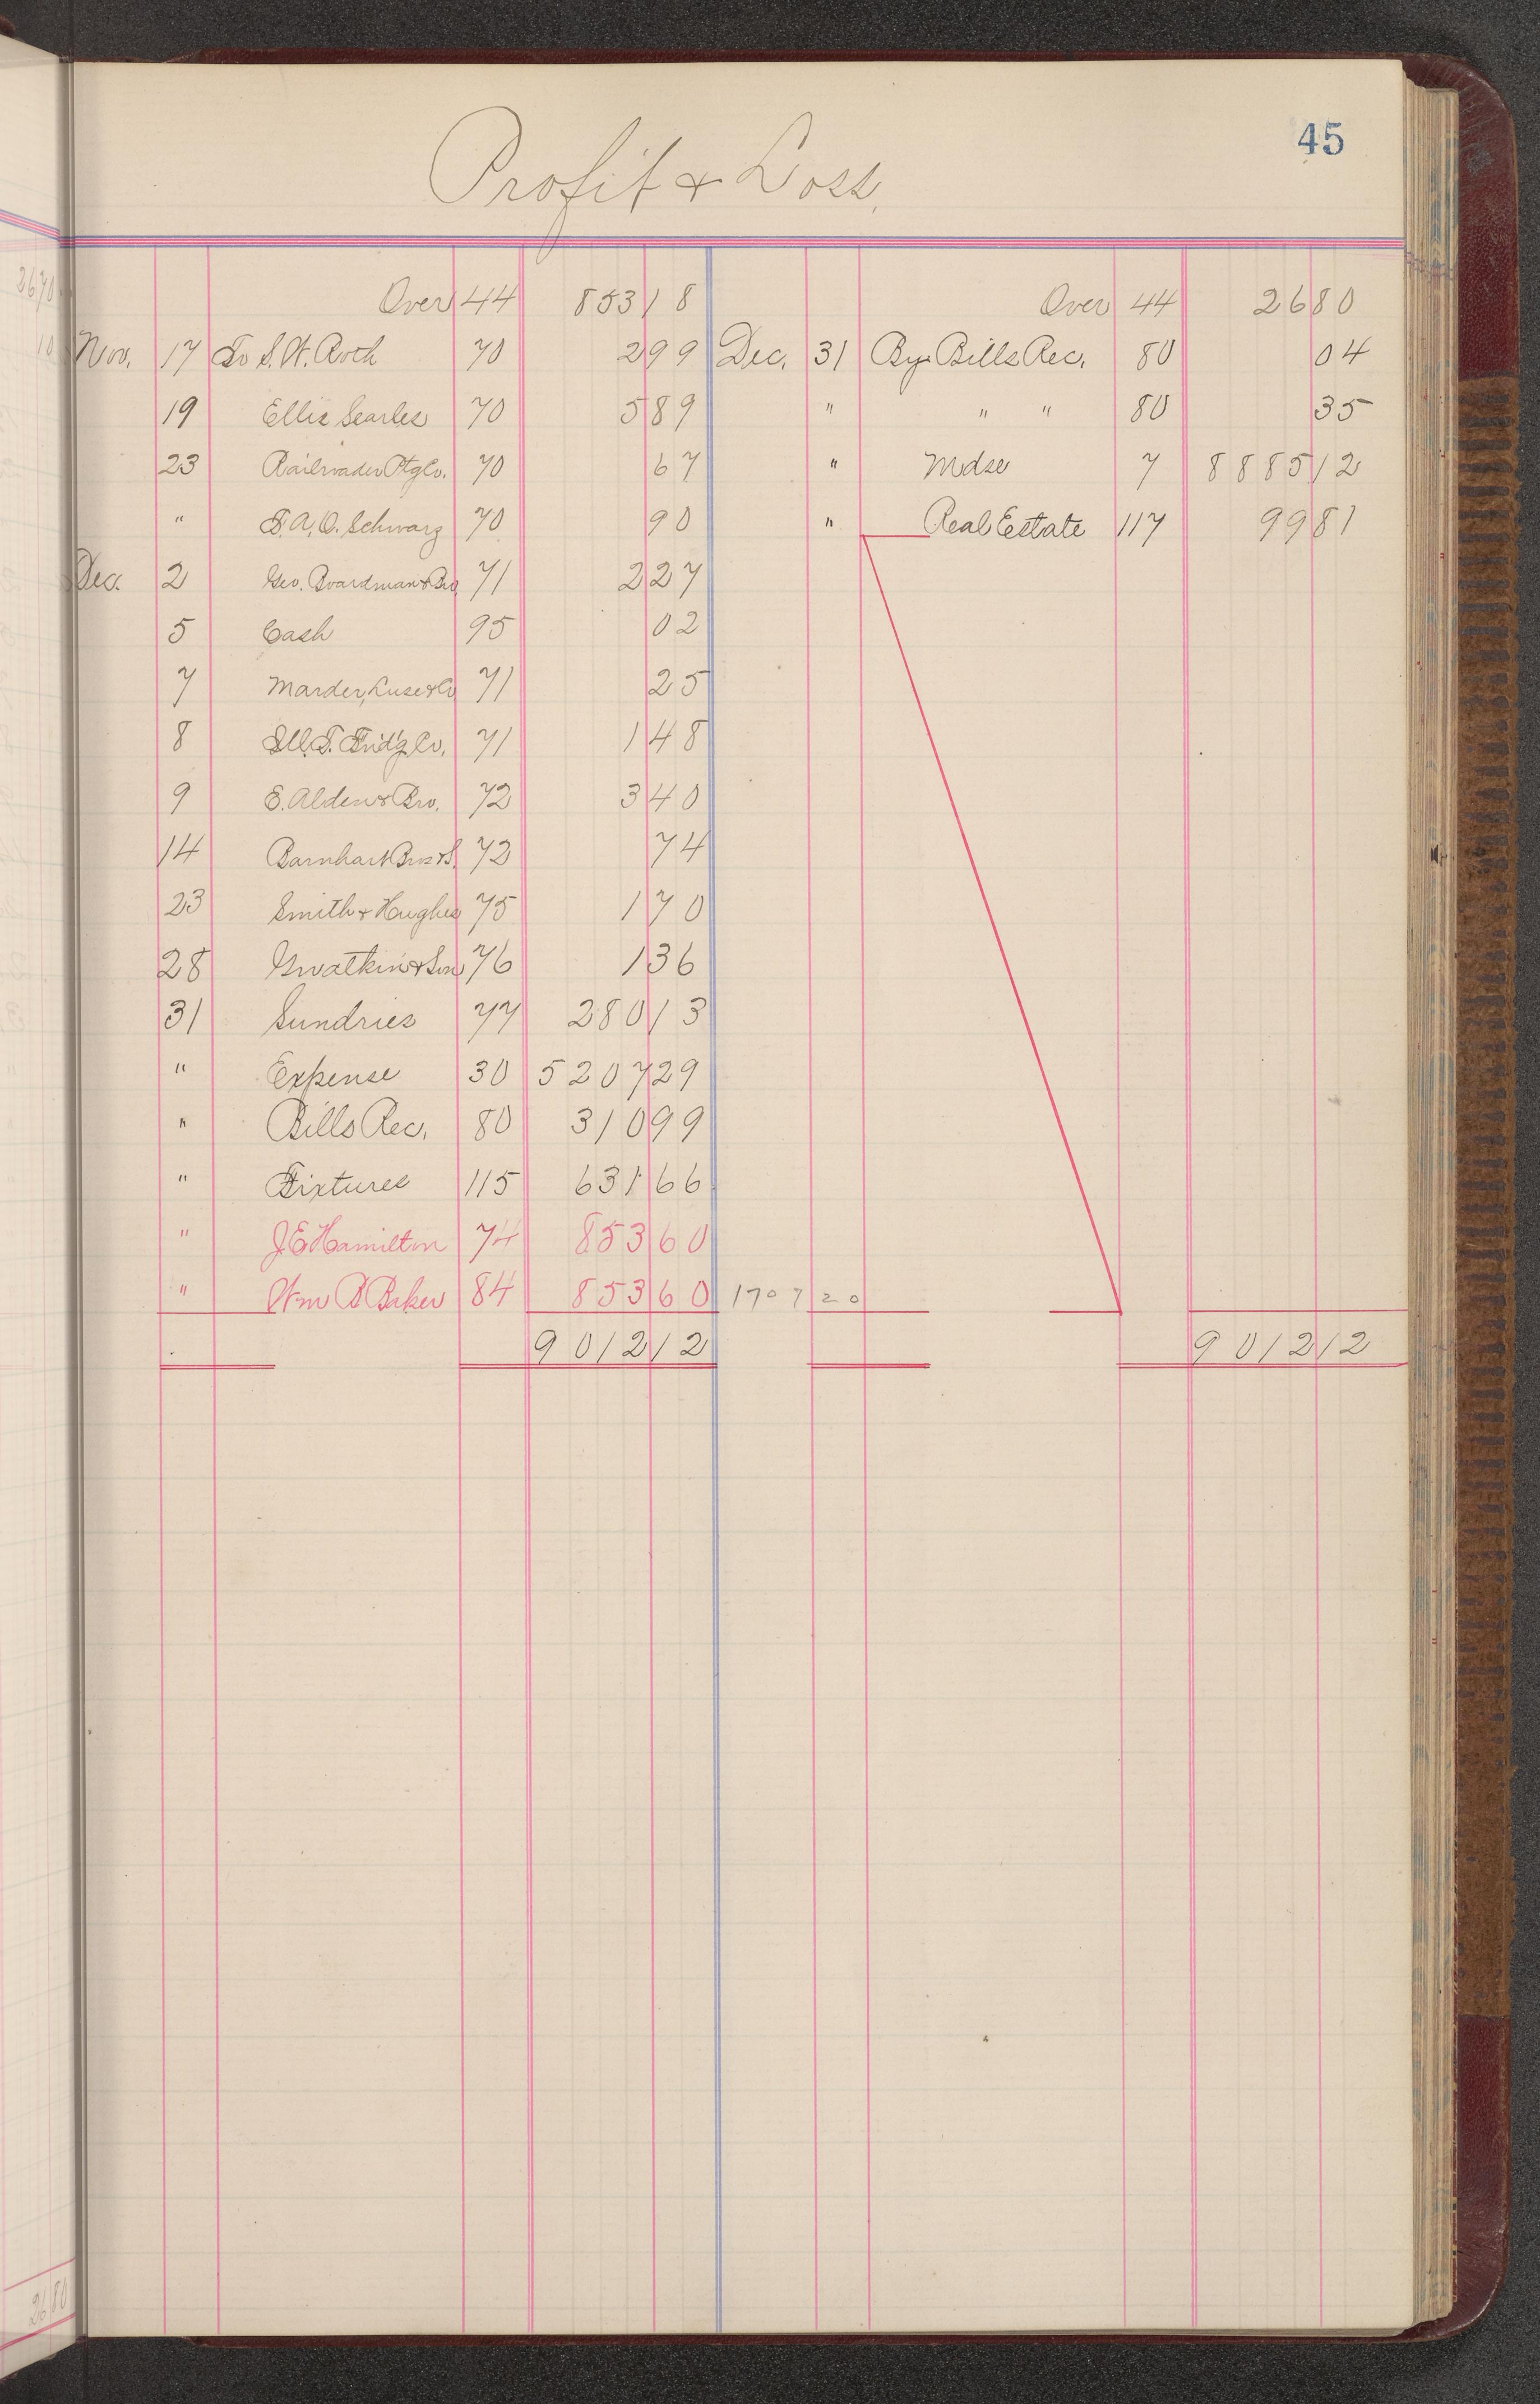 45
Profit & Loss.
Over 44 853 18 Over 44 26 80
Nov. 17 To S. W. Roth 70 2 99 Dec. 31 By Bills Rec. 80 04
19 Ellis Searles 70 5 89 " " " 80 35
23 Railroader Ptg Co. 70 67 " Mdse 7 8885 12
" F. A. O. Schwarz 70 90 " Real Eestate 117 99 81
Dec. 2 Geo. Boardman & Bro 71 2 27
5 Cash 95 02
7 Marder, Luse & Co 71 25
8 71 1 48
9 E. Alden & Bro. 72 3 40
14 Barnhart Bros & S. 72 74
23 Smith & Hughes 75 1 70
28 Gwatkin & Son 76 1 36
31 Sundries 77 280 13
" Expense 30 5207 29
" Bills Rec. 80 310 99
" Fixtures 115 631 66
" J E Hamilton 74 853 60
" Wm B Baker 84 853 60 1707 20
9012 12 9012 12
26 80